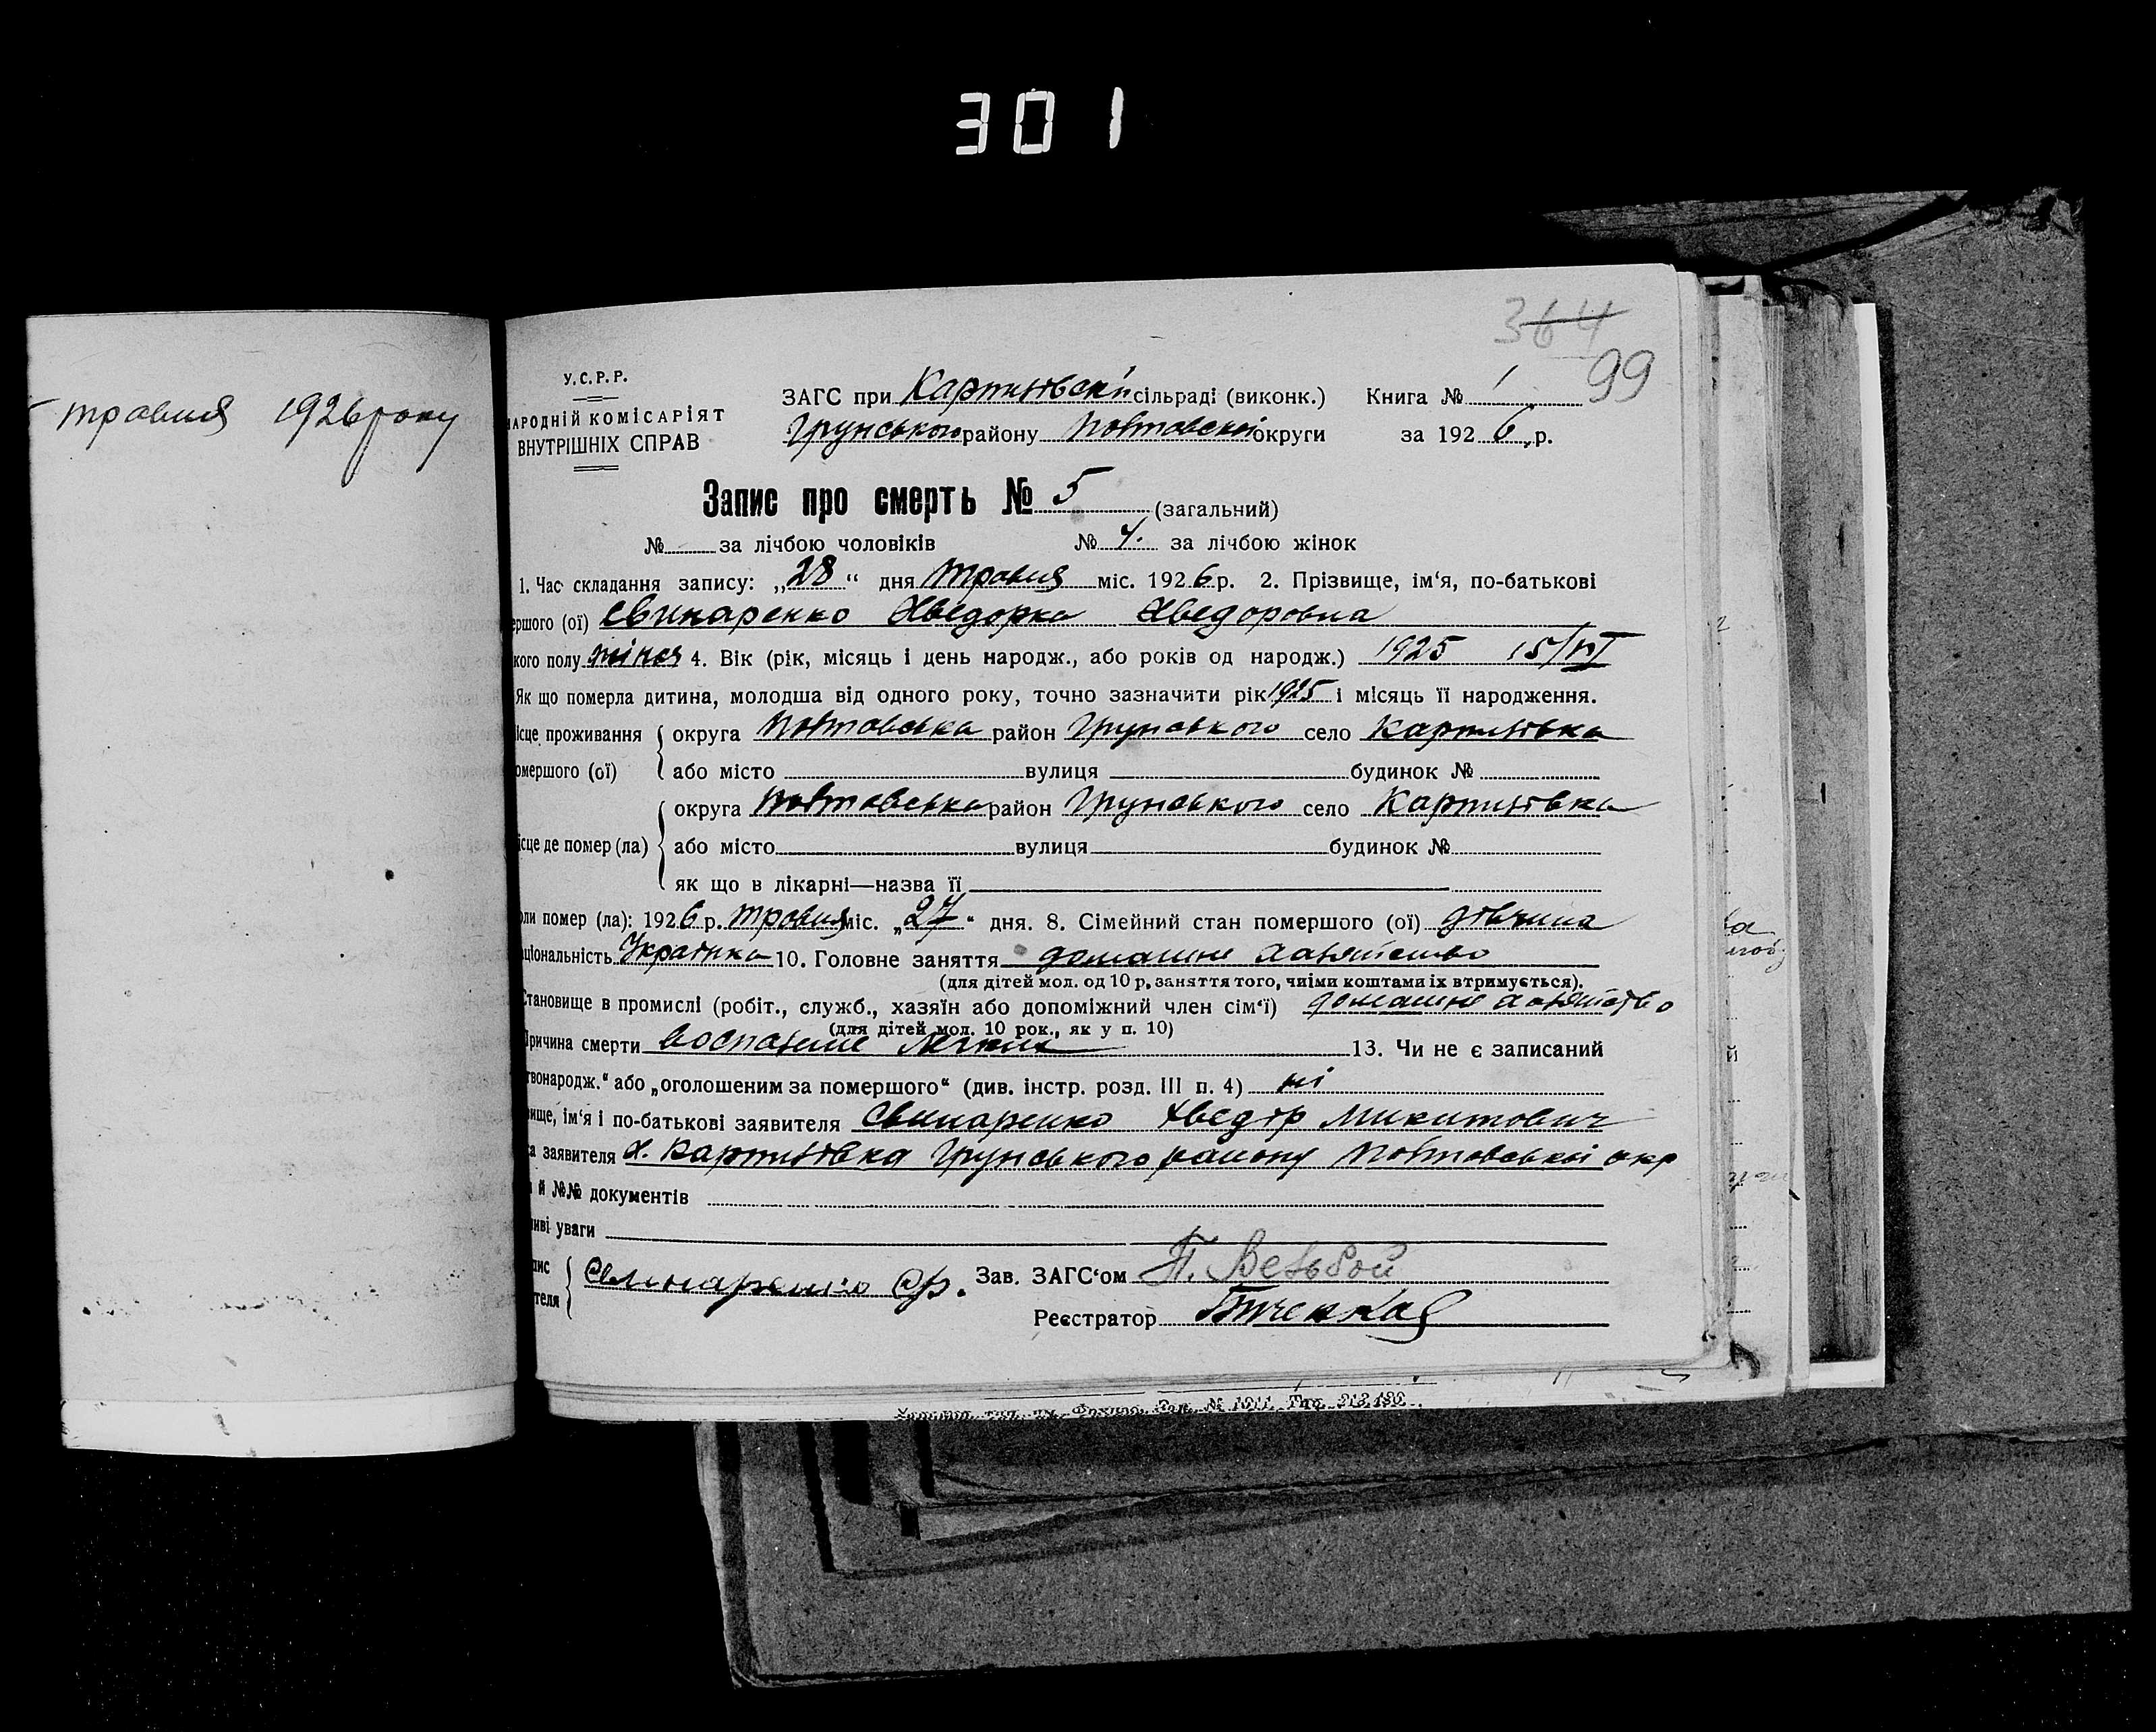 301
364
99
травня 1926 року
У.С.Р.Р.
НАРОДНІЙ КОМІСАРІЯТ
ВНУТРІШНІХ СПРАВ
ЗАГС при сільраді (виконк.) Книга № 1
Грунського району Полтавської округи за 1926 р.
Запис про смерть № 5 (загальний)
№ за лічбою чоловіків № 4. за лічбою жінок
1. Час складання запису: „28“ дня травня міс. 1926 р. 2. Прізвище, ім‘я, по-батькові
ершого (ої) Свинаренко Хведорка Хведоровна
кого полу жіноч 4. Вік (рік, місяць і день народж., або років од народж.) 1925 15/VI
Як що померла дитина, молодша від одного року, точно зазначити рік 1925 і місяць її народження.
ісце проживання округа Полтавська район Грунського село
омершого (ої) або місто вулиця будинок №
округа Полтавська район Грунського село
ісце де помер (ла) або місто вулиця будинок №
як що в лікарні—назва її
оли помер (ла): 1926 р. травня міс. „27“ дня. 8. Сімейний стан помершого (ої) дівчина
аціональність Українка 10. Головне заняття домашне хазяйство
(для дітей мол. од 10 р, заняття того, чиїми коштами їх втримується).
Становище в промислі (робіт., служб., хазяїн або допоміжний член сім‘ї) домашне хазяйство
(для дітей мол. 10 рок., як у п. 10)
Причина смерти воспаление легких 13. Чи не є записаний
твонародж.“ або „оголошеним за помершого“ (див. інстр. розд. III п. 4) ні
вище, ім‘я і по-батькові заявителя Свинаренко Хведір Микитович
са заявителя х. Грунського району Полтавської окр
й №№ документів
иві уваги
пис Свинаренко Ф. Зав. ЗАГС‘ом П.
теля
Реєстратор